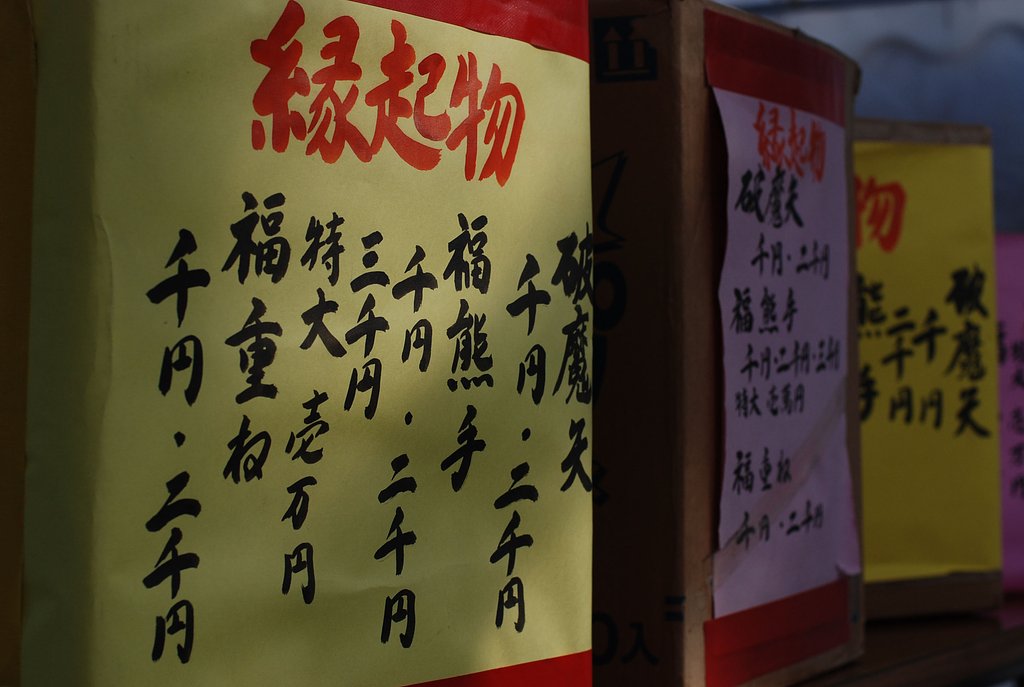 縁起物
破魔矢
千円・二千円
福熊手
千円・二千円
三千円
特大 壱万円
福重ね
千円・二千円
縁起物
破魔矢
千円・二千円
福熊手
千円・二千円・三千円
特大 壱萬円
福重ね
千円・二千円
物
破魔矢
千円
二千円
熊手
入